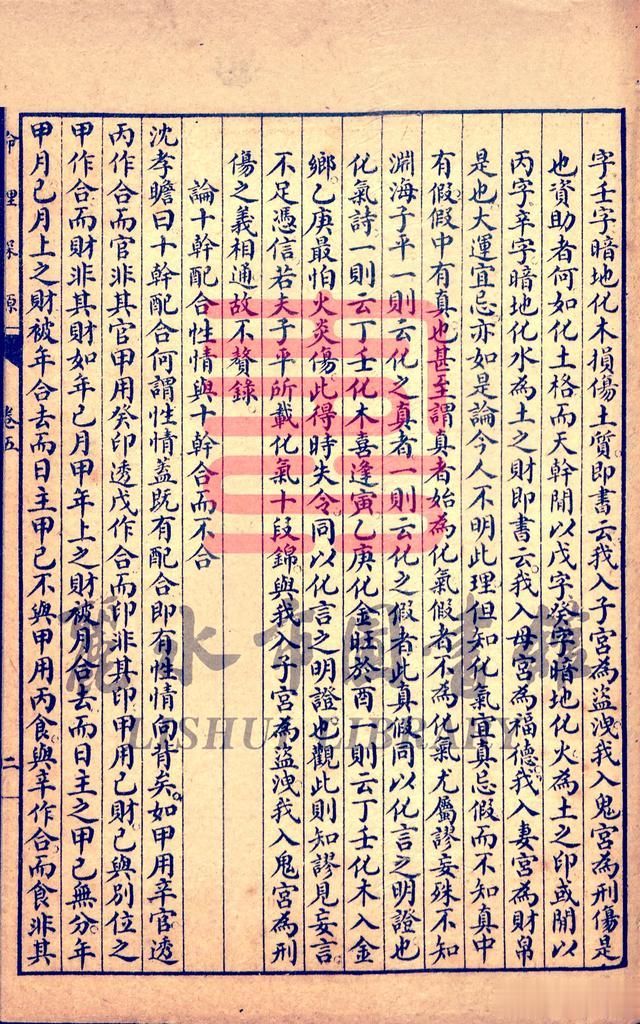 字壬字暗地化木損傷土質即書云我入子宮為盜洩我入鬼宮為刑傷是
也資助者何如化土格而天幹間以戊字癸字暗地化火為土之印或間以
丙字辛字暗地化水為土之財即書云我入母宮為福德我入妻宮為財帛
是也大運宜忌亦如是論今人不明此理但知化氣宜真忌假而不知真中
有假假中有真也甚至謂真者始為化氣假者不為化氣尤屬謬妄殊不知
淵海子平一則云化之真者一則云化之假者此真假同以化言之明證也
化氣詩一則云丁壬化木喜逢寅乙庚化金旺於酉一則云丁壬化木入金
鄉乙庚最怕火炎傷此得時失令同以化言之明證也觀此則知謬見妄言
不足憑信若夫子平所載化氣十段錦與我入子宮為盜洩我入鬼宮為刑
傷之義相通故不贅錄
論十幹配合性情與十幹合而不合
沈孝瞻曰十幹配合何謂性情蓋既有配合即有性情向背矣如甲用辛官透
丙作合而官非其官甲用癸印透戊作合而印非其印甲用己財己與別位之
甲作合而財非其財如年己月甲年上之財被月合去而日主之甲己無分年
甲月己月上之財被年合去而日主甲己不與甲用丙食與辛作合而食非其
命理探原
卷五
二
麗水市圖書館
LISHUI LIBRARY